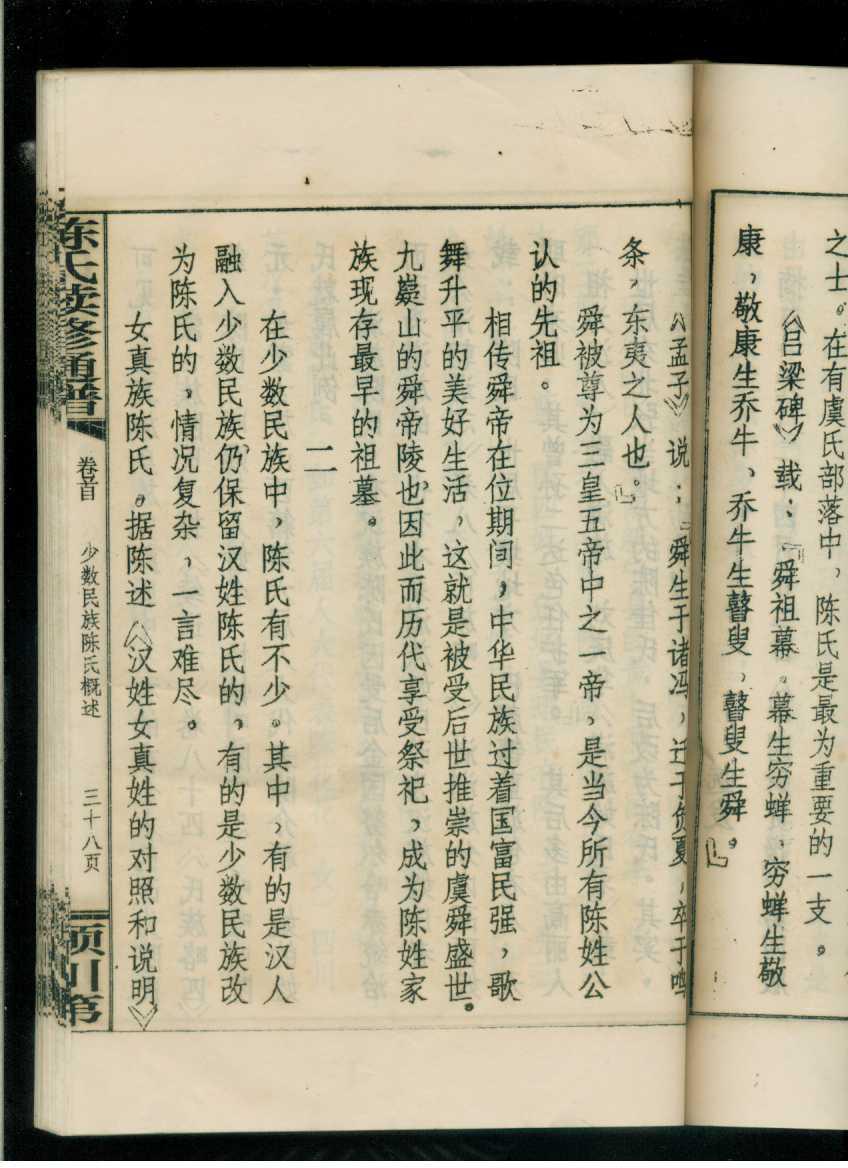 之士。在有虞氏部落中，陈氏是最为重要的一支。
《吕梁碑》载：“舜祖幕。幕生穷蝉、穷蝉生敬
康，敬康生乔牛、乔牛生瞽叟，瞽叟生舜。”
《孟子》说：“舜生于诸冯，迁于负夏，卒于鸣
条，东夷之人也。”
舜被尊为三皇五帝中之一帝，是当今所有陈姓公
认的先祖。
相传舜帝在位期间，中华民族过着国富民强，歌
舞升平的美好生活，这就是被受后世推崇的虞舜盛世。
九嶷山的舜帝陵也因此而历代享受祭祀，成为陈姓家
族现存最早的祖墓。
二
在少数民族中，陈氏有不少。其中，有的是汉人
融入少数民族仍保留汉姓陈氏的，有的是少数民族改
为陈氏的，情况复杂，一言难尽。
女真族陈氏。据陈述《汉姓女真姓的对照和说明》
陈氏续修通谱
卷首
少数民族陈氏概述
三十八页
川第